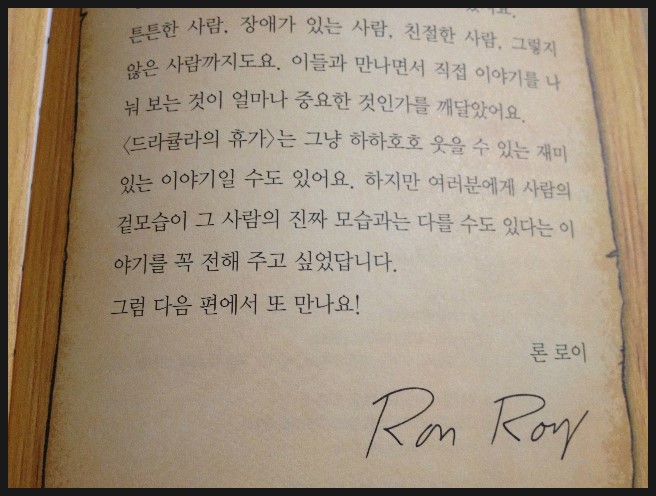 튼튼한 사람, 장애가 있는 사람, 친절한 사람, 그렇지
않은 사람까지도요. 이들과 만나면서 직접 이야기를 나
눠 보는 것이 얼마나 중요한 것인가를 깨달았어요.
〈드라큘라의 휴가〉는 그냥 하하호호 웃을 수 있는 재미
있는 이야기일 수도 있어요. 하지만 여러분에게 사람의
겉모습이 그 사람의 진짜 모습과는 다를 수도 있다는 이
야기를 꼭 전해 주고 싶었답니다.
그럼 다음 편에서 또 만나요!
론 로이
Ron Roy